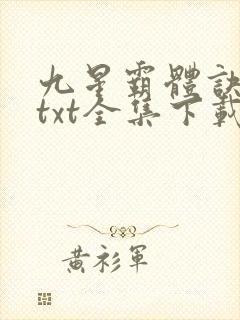 九星霸體訣
txt全集下載
黃衫軍